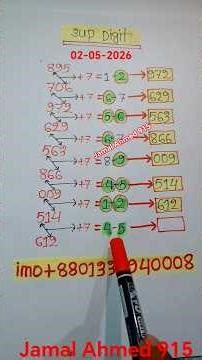 3up Digit
02-05-2026
895
+7=1-2→972
706
+7=6-7→629
979
+7=5-6→563
629
+7=6-7→866
563
+7=8-9→009
866
+7=4-5→514
009
+7=1-2→612
514
+7=4-5→
612
Jamal Ahmed 915
Jamal Ahmed 915